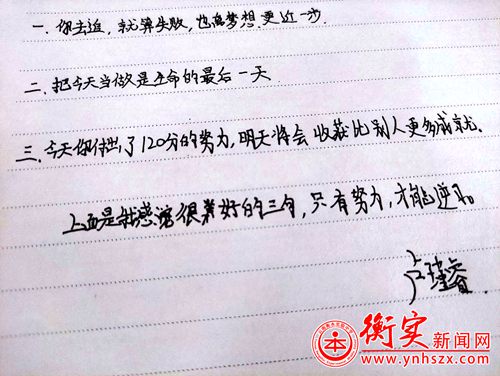 一、你去追，就算失败，也离梦想更近一步
二、把今天当做是生命的最后一天
三、今天你付出了120分的努力，明天将会收获比别人更多成就。
上面是我感觉很美好的三句，只有努力，才能逆风。
卢瑾睿
衡实新闻网
www.ynhszx.com